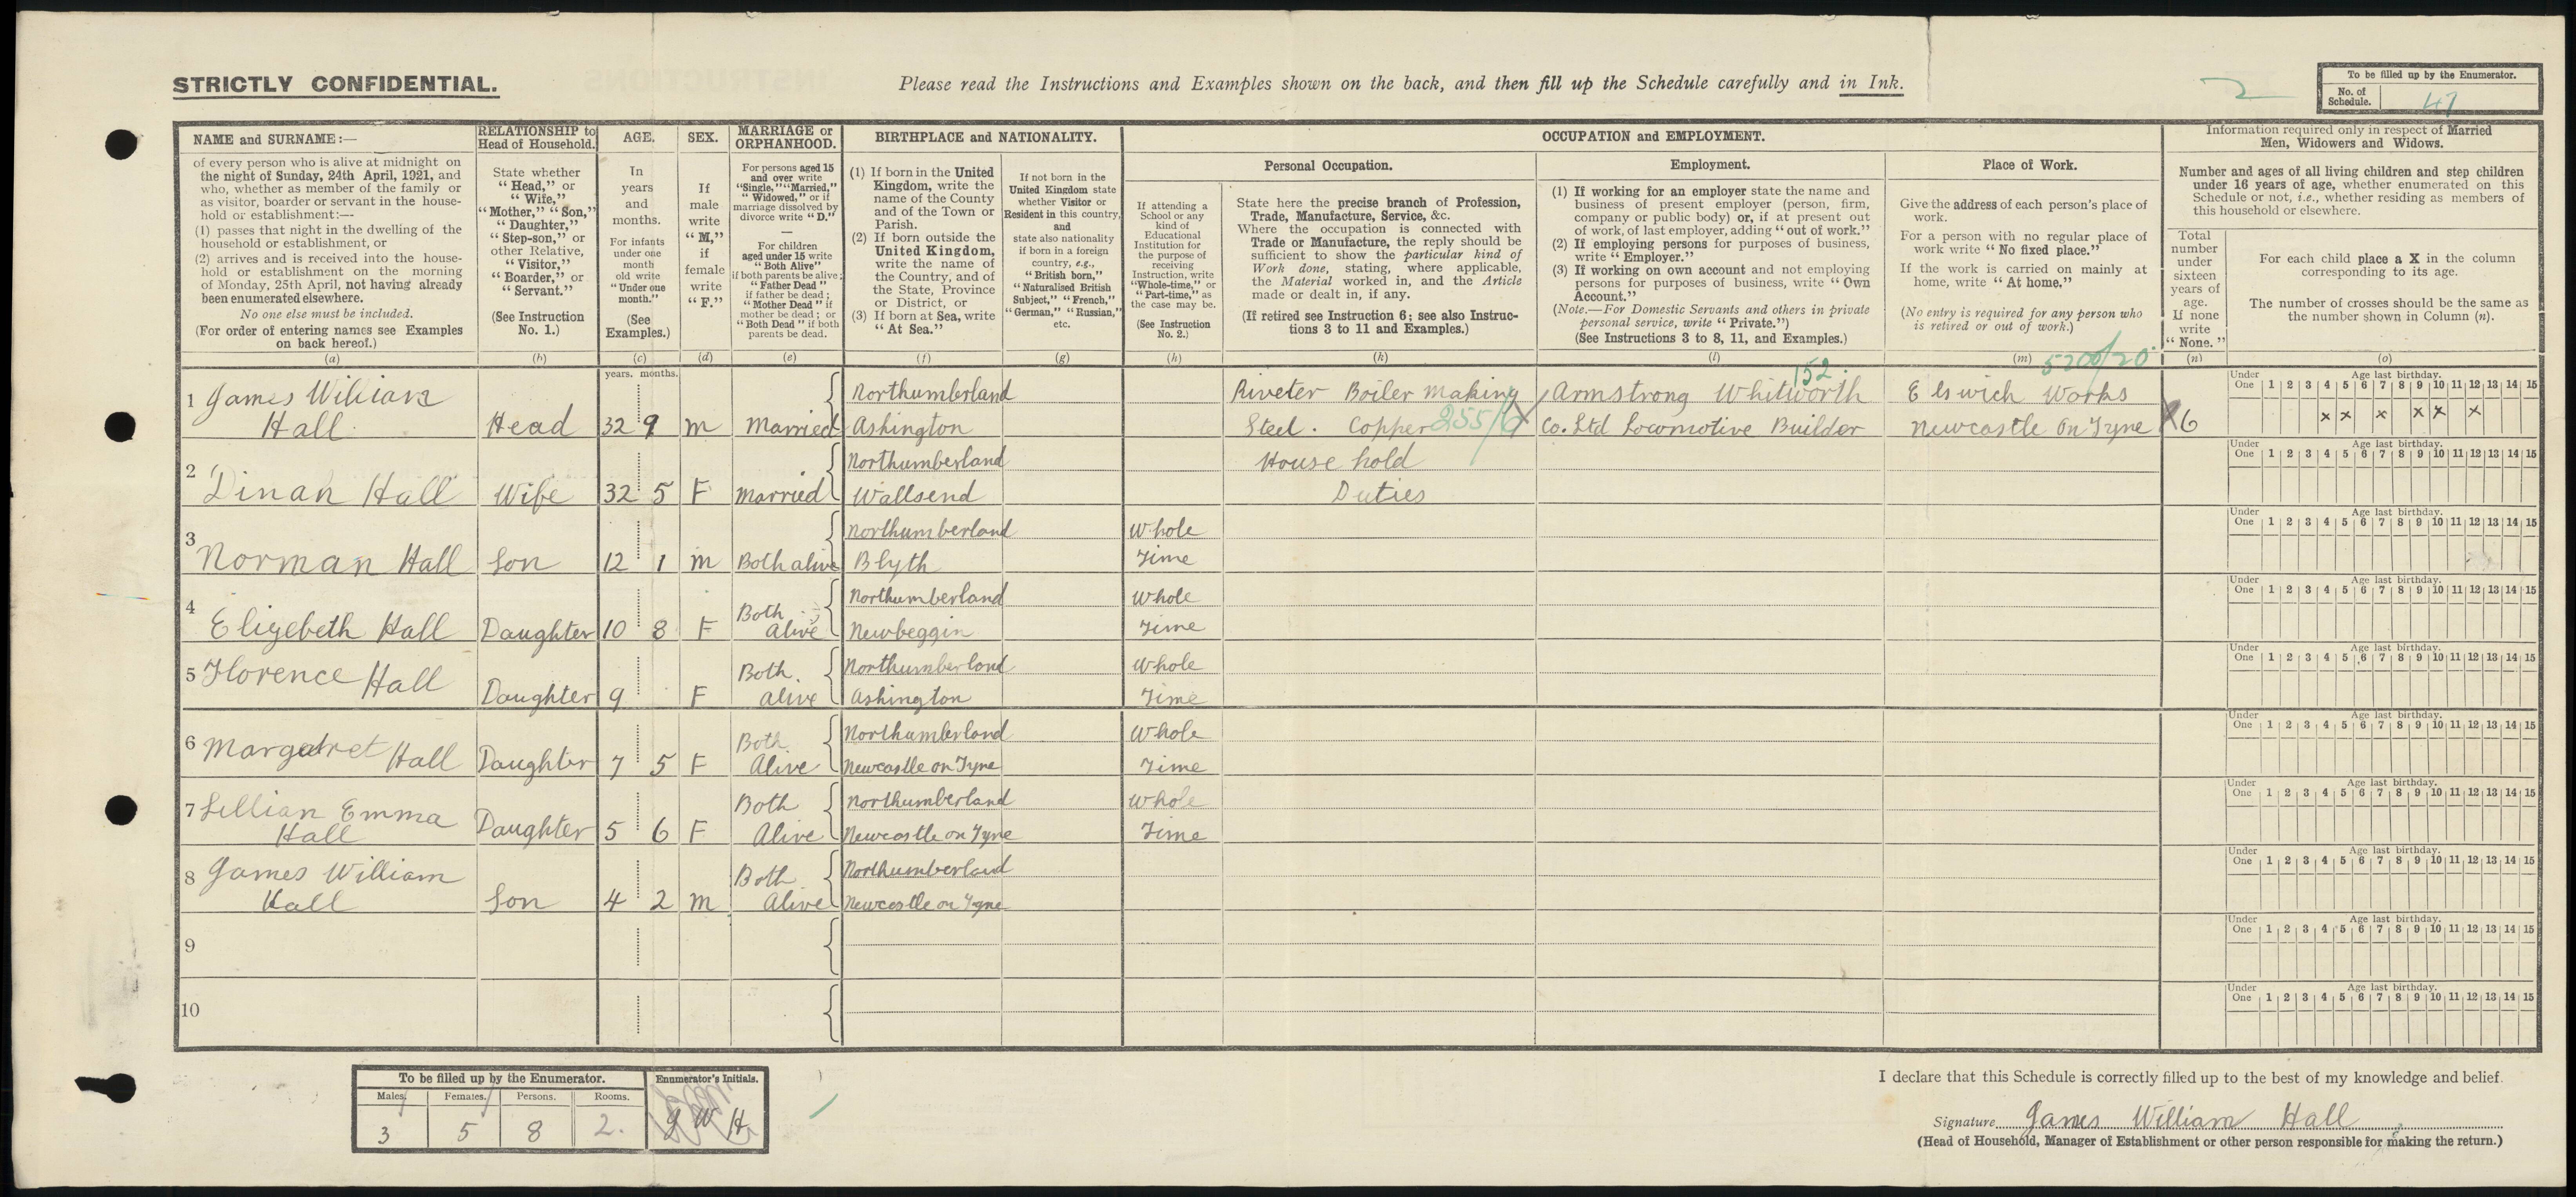 STRICTLY CONFIDENTIAL.
Please read the Instructions and Examples shown on the back, and then fill up the Schedule carefully and in Ink.
2
To be filled up by the Enumerator.
No. of Schedule. 47
NAME and SURNAME:—
of every person who is alive at midnight on
the night of Sunday, 24th April, 1921, and
who, whether as member of the family or
as visitor, boarder or servant in the house-
hold or establishment:—
(1) passes that night in the dwelling of the
household or establishment, or
(2) arrives and is received into the house-
hold or establishment on the morning
of Monday, 25th April, not having already
been enumerated elsewhere.
No one else must be included.
(For order of entering names see Examples
on back hereof.)
(a)
RELATIONSHIP to
Head of Household.
State whether
"Head," or
"Wife,"
"Mother," "Son,"
"Daughter,"
"Step-son," or
other Relative,
"Visitor,"
"Boarder," or
"Servant."
(See Instruction
No. 1.)
(b)
AGE.
In
years
and
months.
For infants
under one
month
old write
"Under one
month."
(See
Examples.)
(c)
SEX.
If
male
write
"M,"
if
female
write
"F."
(d)
MARRIAGE or
ORPHANHOOD.
For persons aged 15
and over write
"Single," "Married,"
"Widowed," or if
marriage dissolved by
divorce write "D."
—
For children
aged under 15 write
"Both Alive"
if both parents be alive;
"Father Dead"
if father be dead;
"Mother Dead" if
mother be dead; or
"Both Dead" if both
parents be dead.
(e)
BIRTHPLACE and NATIONALITY.
(1) If born in the United
Kingdom, write the
name of the County
and of the Town or
Parish.
(2) If born outside the
United Kingdom,
write the name of
the Country, and of
the State, Province
or District, or
(3) If born at Sea, write
"At Sea."
(f)
If not born in the
United Kingdom state
whether Visitor or
Resident in this country,
and
state also nationality
if born in a foreign
country, e.g.,
"British born,"
"Naturalised British
Subject," "French,"
"German," "Russian,"
etc.
(g)
OCCUPATION and EMPLOYMENT.
If attending a
School or any
kind of
Educational
Institution for
the purpose of
receiving
Instruction, write
"Whole-time," or
"Part-time," as
the case may be.
(See Instruction
No. 2.)
(h)
Personal Occupation.
State here the precise branch of Profession,
Trade, Manufacture, Service, &c.
Where the occupation is connected with
Trade or Manufacture, the reply should be
sufficient to show the particular kind of
Work done, stating, where applicable,
the Material worked in, and the Article
made or dealt in, if any.
(If retired see Instruction 6; see also Instruc-
tions 3 to 11 and Examples.)
(k)
Employment.
(1) If working for an employer state the name and
business of present employer (person, firm,
company or public body) or, if at present out
of work, of last employer, adding "out of work."
(2) If employing persons for purposes of business,
write "Employer."
(3) If working on own account and not employing
persons for purposes of business, write "Own
Account."
(Note.—For Domestic Servants and others in private
personal service, write "Private.")
(See Instructions 3 to 8, 11, and Examples.)
(l)
Place of Work.
Give the address of each person's place of
work.
For a person with no regular place of
work write "No fixed place."
If the work is carried on mainly at
home, write "At home."
(No entry is required for any person who
is retired or out of work.)
(m)
Information required only in respect of Married
Men, Widowers and Widows.
Number and ages of all living children and step children
under 16 years of age, whether enumerated on this
Schedule or not, i.e., whether residing as members of
this household or elsewhere.
Total
number
under
sixteen
years of
age.
If none
write
"None."
(n)
For each child place a X in the column
corresponding to its age.
The number of crosses should be the same as
the number shown in Column (n).
(o)
years. months.
152.
5200/20
1 James William Northumberland Riveter Boiler Making Armstrong Whitworth Elswich Works
Hall Head 32 9 M Married Ashington Steel. Copper 255/ Co. Ltd Locomotive Builder Newcastle On Tyne 6
Under One 1 2 3 4 5 6 7 8 9 10 11 12 13 14 15
Age last birthday.
x x x x x x
2 Northumberland House hold
Dinah Hall Wife 32 5 F Married Wallsend Duties
Under One 1 2 3 4 5 6 7 8 9 10 11 12 13 14 15
Age last birthday.
3 Northumberland Whole
Norman Hall Son 12 1 M Both alive Blyth Time
Under One 1 2 3 4 5 6 7 8 9 10 11 12 13 14 15
Age last birthday.
4 Both Northumberland Whole
Elizebeth Hall Daughter 10 8 F Alive Newbeggin Time
Under One 1 2 3 4 5 6 7 8 9 10 11 12 13 14 15
Age last birthday.
5 Florence Hall Both Northumberland Whole
Daughter 9 F alive Ashington Time
Under One 1 2 3 4 5 6 7 8 9 10 11 12 13 14 15
Age last birthday.
6 Margatret Hall Both Northumberland Whole
Daughter 7 5 F Alive Newcastle on Tyne Time
Under One 1 2 3 4 5 6 7 8 9 10 11 12 13 14 15
Age last birthday.
7 Lillian Emma Both Northumberland Whole
Hall Daughter 5 6 F Alive Newcastle on Tyne Time
Under One 1 2 3 4 5 6 7 8 9 10 11 12 13 14 15
Age last birthday.
8 James William Both Northumberland
Hall Son 4 2 M Alive Newcastle on Tyne
Under One 1 2 3 4 5 6 7 8 9 10 11 12 13 14 15
Age last birthday.
9
Under One 1 2 3 4 5 6 7 8 9 10 11 12 13 14 15
Age last birthday.
10
Under One 1 2 3 4 5 6 7 8 9 10 11 12 13 14 15
Age last birthday.
To be filled up by the Enumerator.
Males. Females. Persons. Rooms.
3 5 8 2.
Enumerator's Initials.
J W H
I declare that this Schedule is correctly filled up to the best of my knowledge and belief.
Signature James William Hall
(Head of Household, Manager of Establishment or other person responsible for making the return.)